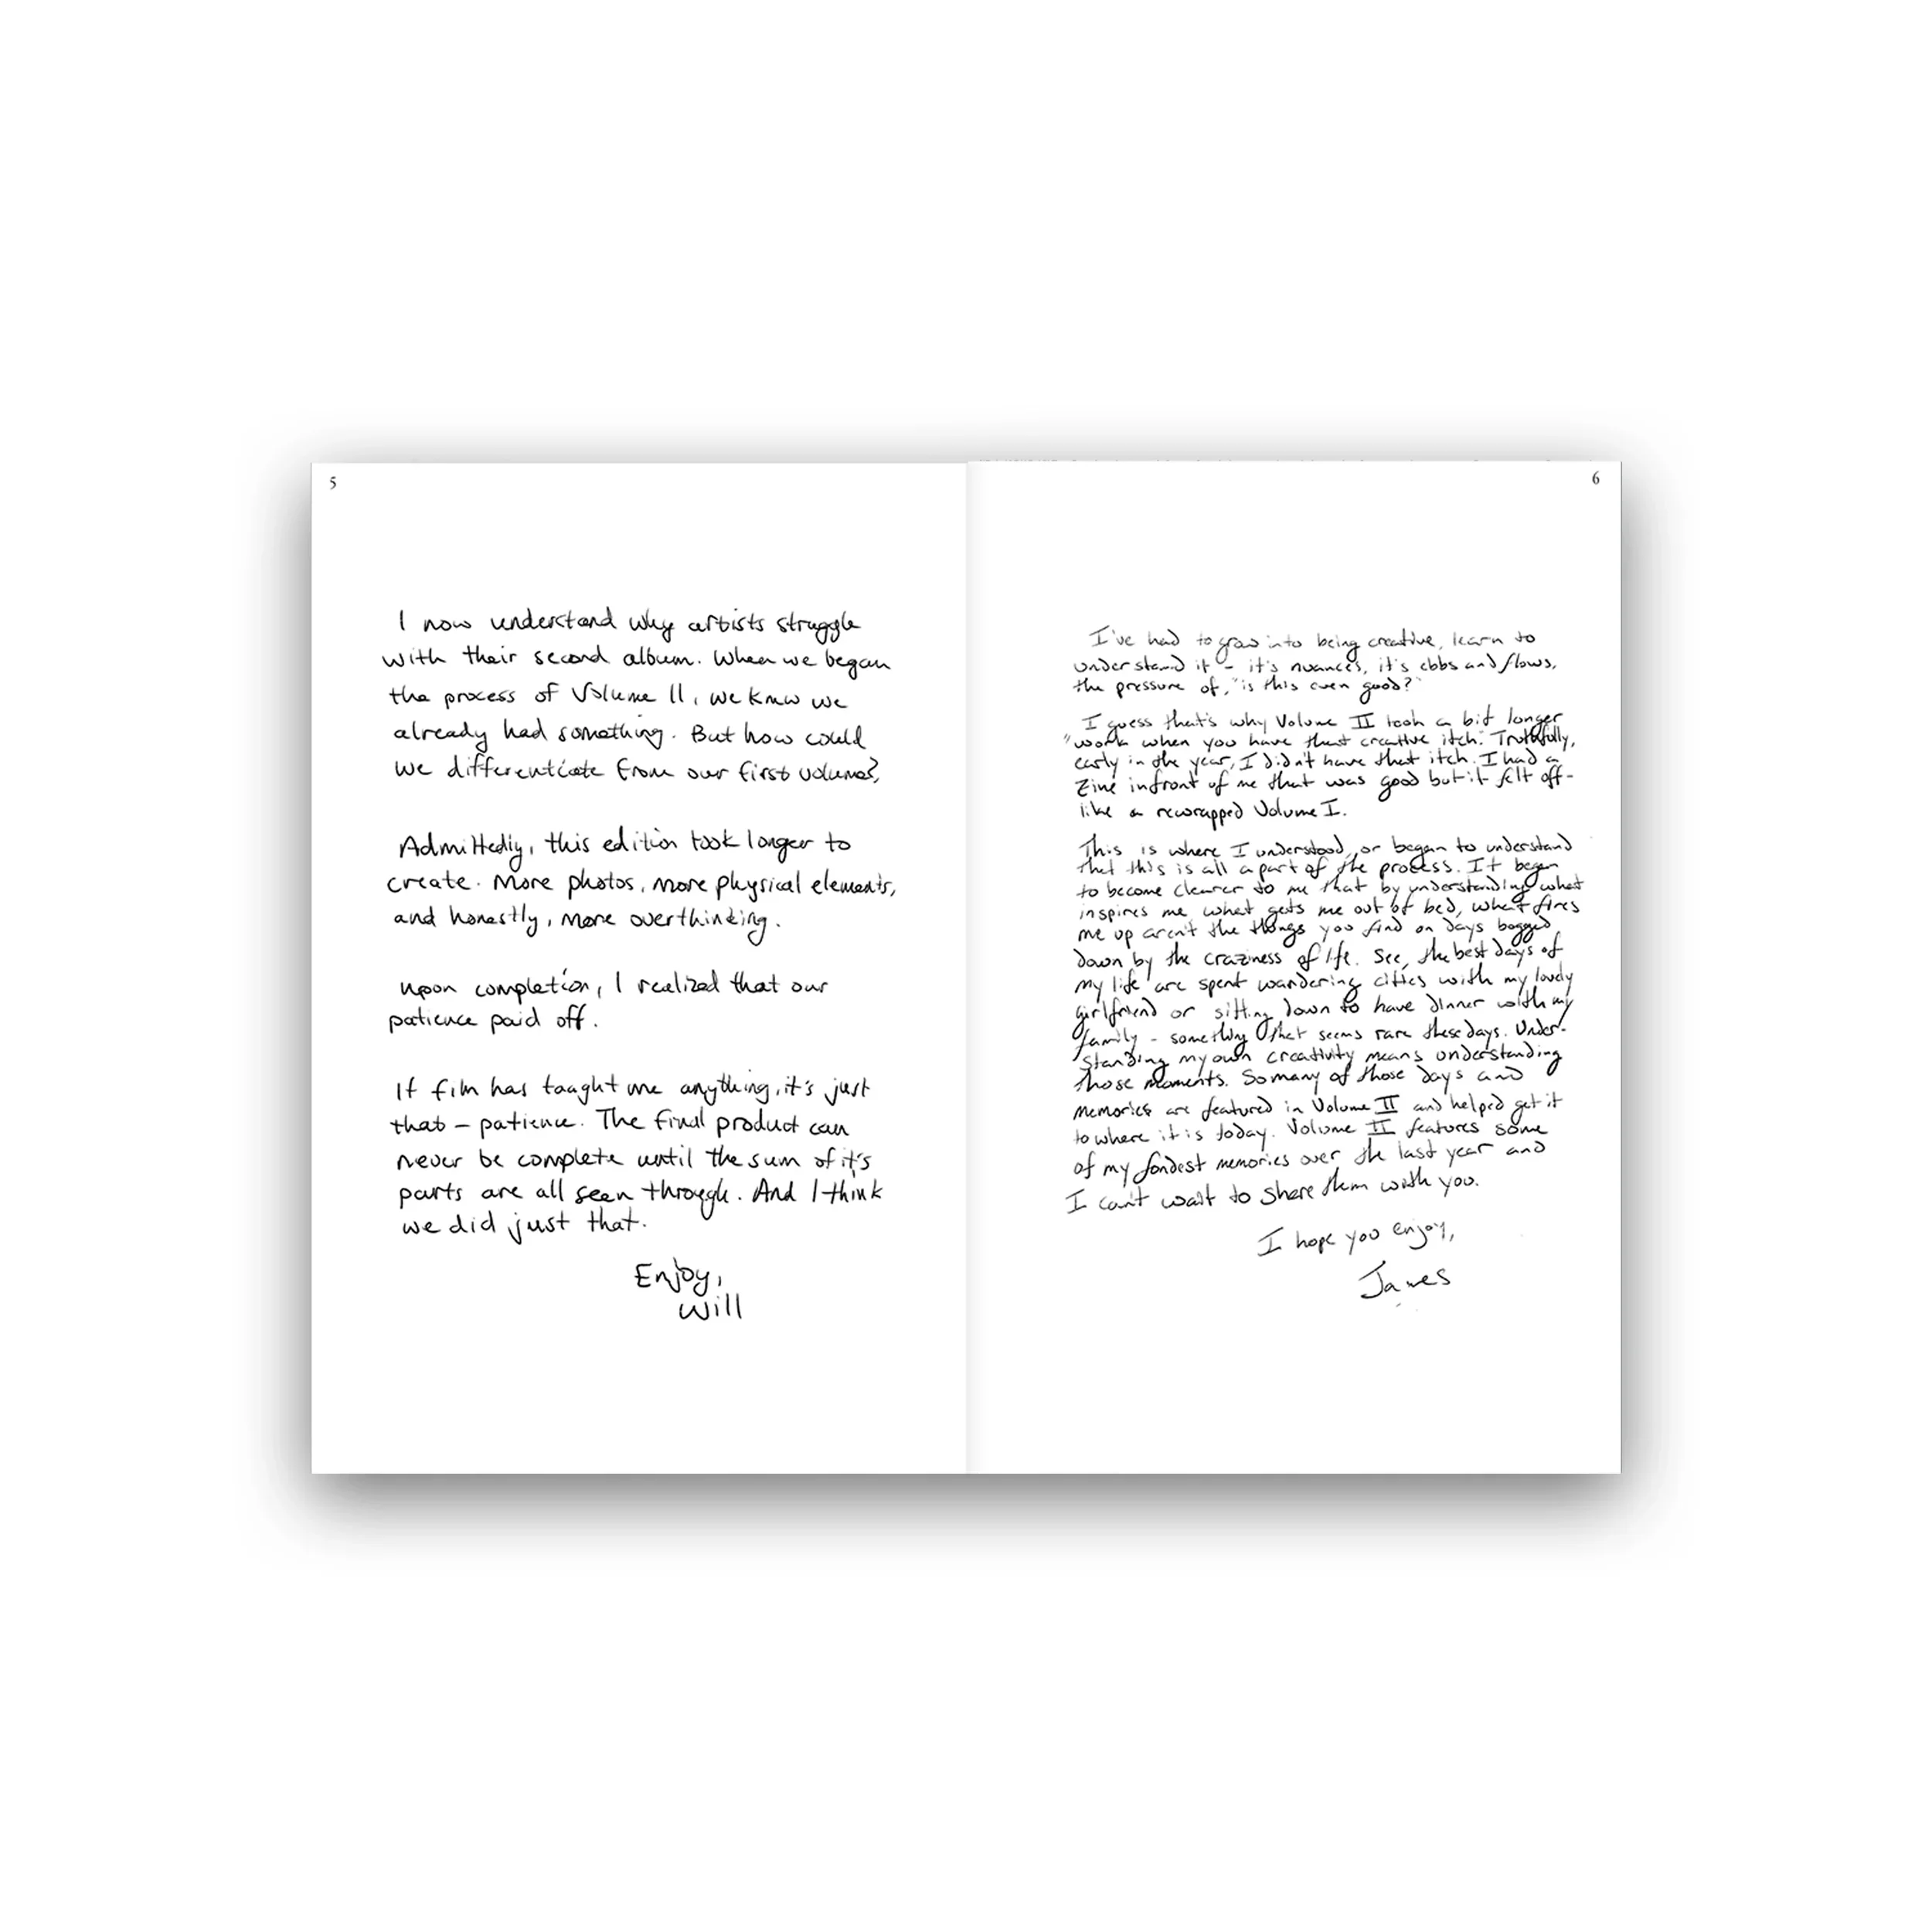 5
I now understand why artists struggle
with their second album. When we began
the process of Volume II, we knew we
already had something. But how could
we differentiate from our first volume?
Admittedly, this edition took longer to
create. More photos, more physical elements,
and honestly, more overthinking.
upon completion, I realized that our
patience paid off.
If film has taught me anything, it's just
that – patience. The final product can
never be complete until the sum of it's
parts are all seen through. And I think
we did just that.
Enjoy,
Will
6
I've had to grow into being creative, learn to
understand it – it's nuances, it's ebbs and flows,
the pressure of, "is this even good?"
I guess that's why Volume II took a bit longer
"work when you have that creative itch." Truthfully,
early in the year, I didn't have that itch. I had a
Zine infront of me that was good but it felt off –
like a rewrapped Volume I.
This is where I understood, or began to understand
that this is all a part of the process. It began
to become clearer to me that by understanding what
inspires me, what gets me out of bed, what fires
me up aren't the things you find on days bogged
down by the craziness of life. See, the best days of
my life are spent wandering cities with my lovely
girlfriend or sitting down to have dinner with my
family – something that seems rare these days. Under-
standing my own creativity means understanding
those moments. So many of those days and
memories are featured in Volume II and helped get it
to where it is today. Volume II features some
of my fondest memories over the last year and
I can't wait to share them with you.
I hope you enjoy,
James